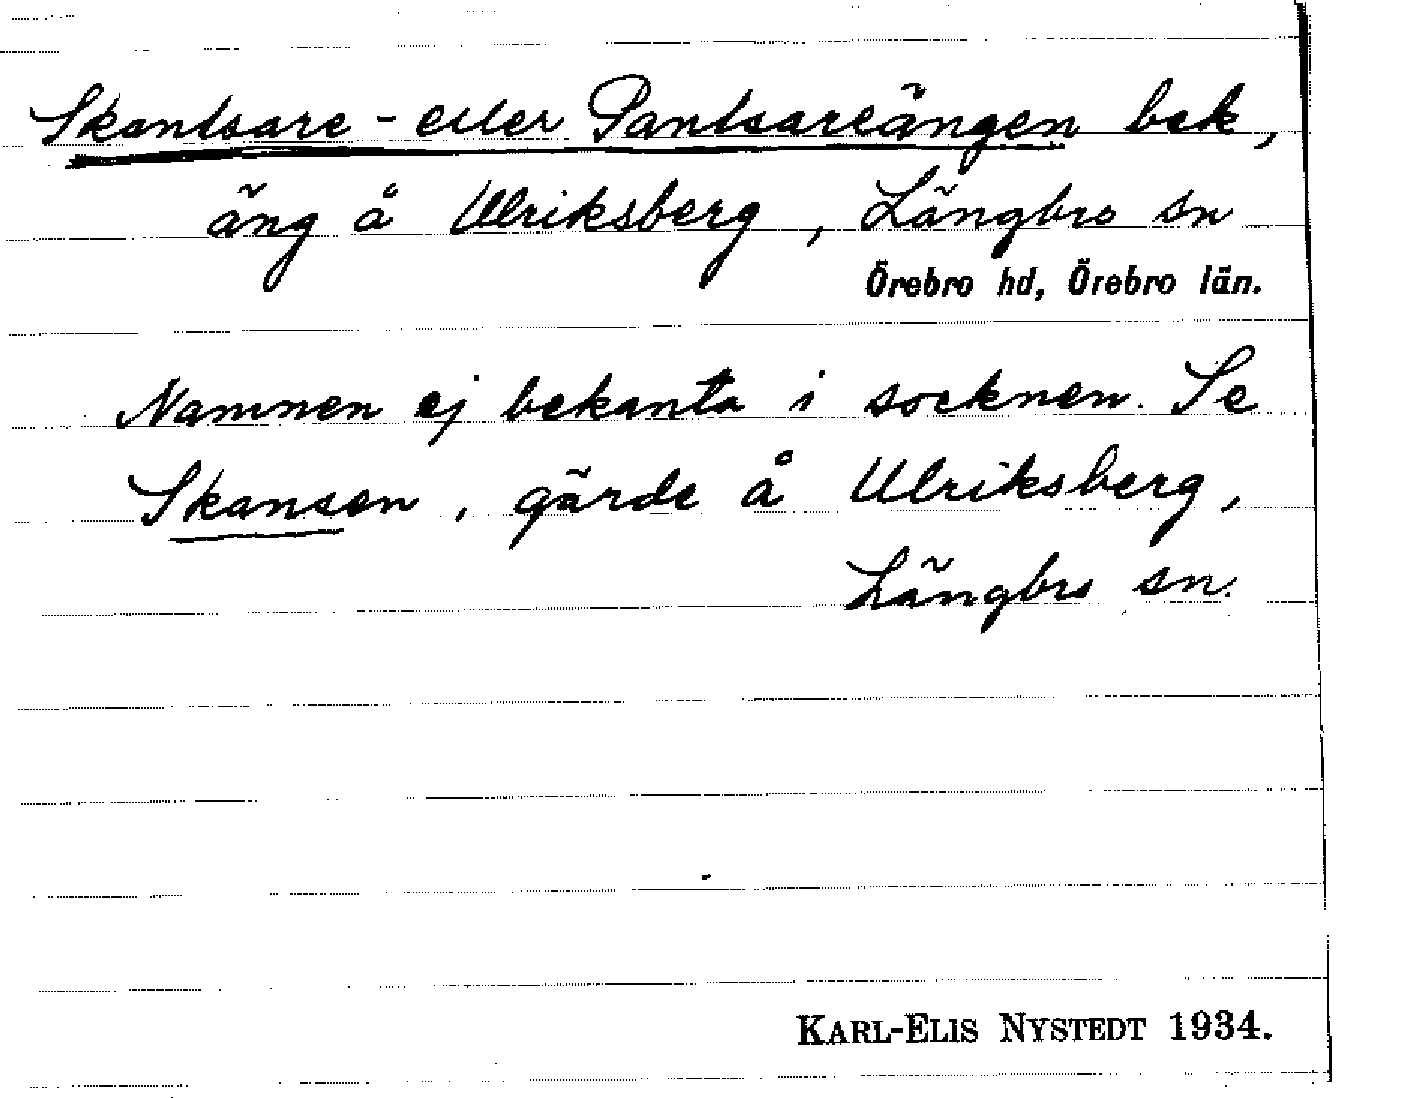 Skantsare- eller Pantsareängen bek,
äng å Ulriksberg, Längbro sn
Örebro hd, Örebro län.
Namnen ej bekanta i socknen. Se
Skansen, gärde å Ulriksberg,
Längbro sn.
KARL-ELIS NYSTEDT 1934.